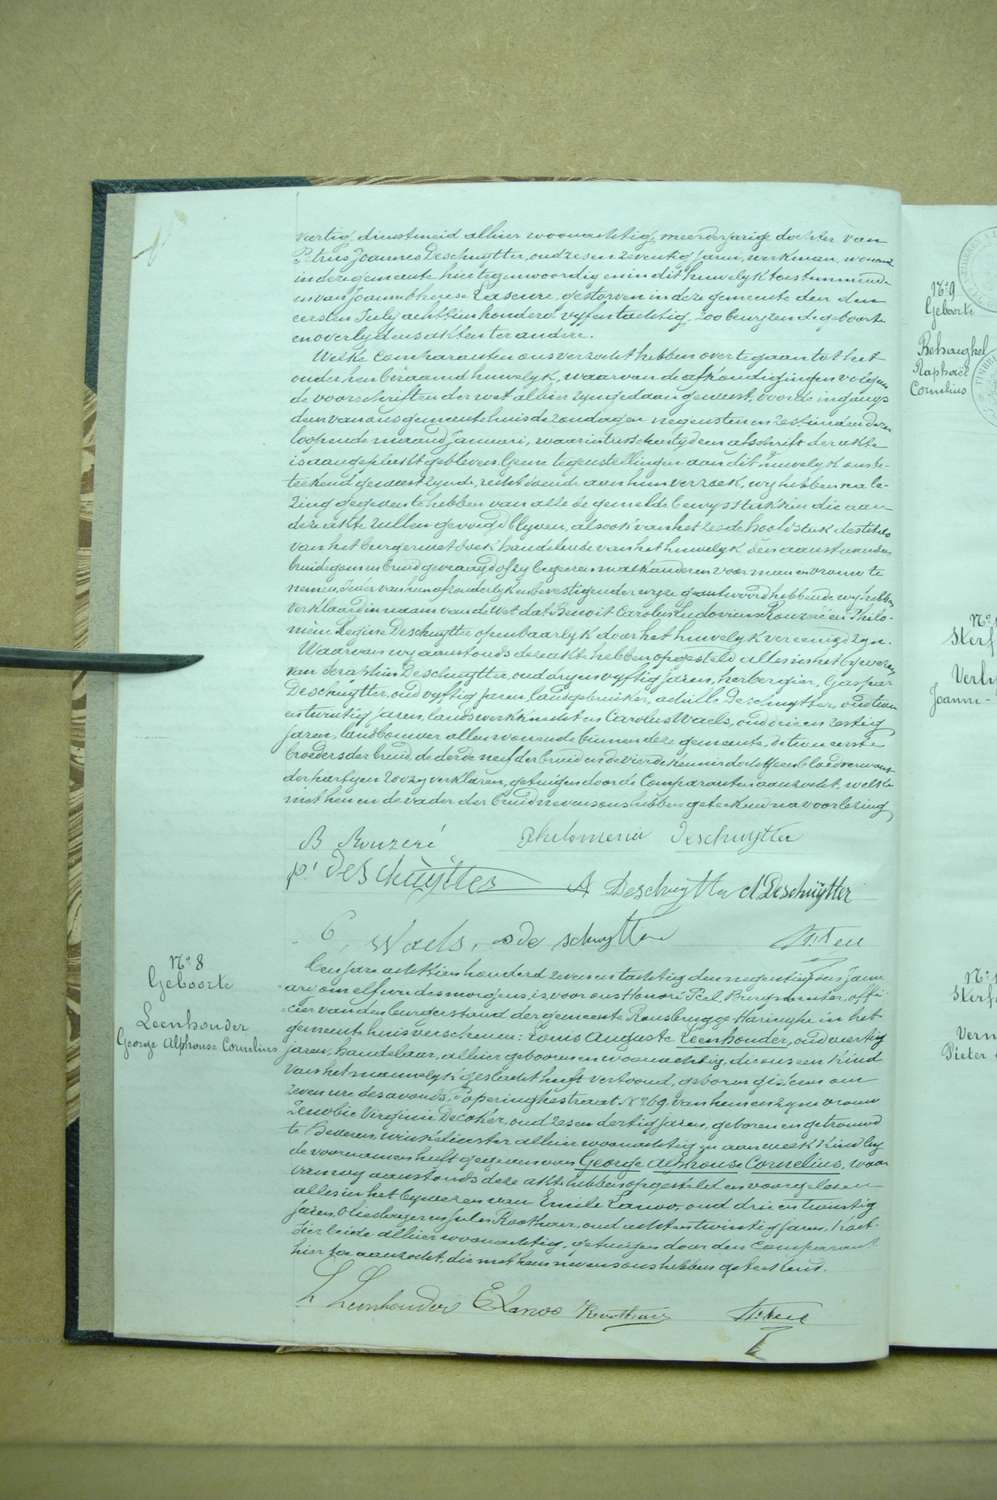 veertig, dienstmeid alhier woonachtig, meerderjarige dochter van
Petrus Joannes Deschuytter, oud zes en zeventig jaren, werkman, wonende
in deze gemeente hier tegenwoordig en in dit huwelyk toestemmende
en van Joanna Theresa Laseure, gestorven in deze gemeente den
eersten July achttien honderd vyf en tachtig, zoo bewyzen de geboorte
en overlydens akten ter andere.
Welke Comparanten ons verzocht hebben over te gaan tot het
onder hen beraamd huwelyk, waarvan de afkondigingen volgens
de voorschriften der wet alhier zyn gedaan geweest, voor de ingangs
deur van ons gemeentehuis de zondagen negensten en zestienden der
loopende maand January, waarin tusschentyd een afschrift der akte
is aangeplakt gebleven. Geene tegenstellingen aan dit huwelyk ons be-
teekend geweest zynde, recht doende aan hun verzoek, wy hebben na le-
zing gegeven te hebben van alle de gemelde bewysstukken die aan
deze akte zullen gevoegd blyven, alsook van het zesde hoofdstuk des titels
van het burger wetboek handelende van het huwelyk den aanstaanden
bruidegom en bruid gevraagd of zy begeeren malkanderen voor man en vrouw te
nemen, ieder van hun afzonderlyk en bevestigender wyze geantwoord hebbende wy hebben
verklaard in naam van de wet dat Benoit Carolus Ludovicus Rouzeré en Philo-
mène Regina Deschuytter openbaarlyk door het huwelyk vereenigd zyn.
Waarvan wy aanstonds deze akte hebben opgesteld alles in het bywezen
van Seraphin Deschuytter, oud dry en vyftig jaren, herbergier, Gaspar
Deschuytter, oud vyftig jaren, landgebruiker, Achille Deschuytter, oud
en twintig jaren, landswerkknecht en Carolus Waels, oud drie en zestig
jaren, landbouwer allen wonende binnen deze gemeente, de twee eerste
broeders der bruid de derde neef der bruid en de vierde kennis
der partyen zoo zy verklaren, getuigen door de Comparanten aanzocht, welke
met hen en de vader der bruid nevens ons hebben geteekend na voorlezing
B Rouzeré Philomenie Deschuytter
p. deschuytter A Deschuytter A Deschuytter
C. Waels. S de schuytter
N. 8
Geboorte
Leenhouder
George Alphonse Cornelius
Een jaar achttien honderd zeven en tachtig den negentienden janu-
ari om elf ure des morgens, is voor ons Honoré Peel, Burgmeester, offi-
cier van den burgerstand der gemeente Rousbrugge Haringhe in het
gemeentehuis verschenen: Louis Auguste Leenhouder, oud veertig
jaren, handelaar, alhier geboren en woonachtig, die ons een kind
van het mannelyk geslacht heeft vertoond, geboren gisteren om
zeven ure des avonds, Poperinghestraat N. 69, van hem en zyne vrouw
Zenobie Virginie Decaher, oud zes en dertig jaren, geboren en getrouwd
te Beveren, winkelierster alhier woonachtig en aan welk kind hy
de voornamen heeft gegeven van George Alphonse Cornelius, waar
van wy aanstonds deze akte hebben opgesteld en voorgelezen
alles in het bywezen van Emile Lanoo, oud drie en twintig
jaren, en Jules Roothaer, oud acht en twintig jaren,
beide alhier woonachtig, getuigen door den Comparant
hier toe aanzocht, die met hem nevens ons hebben geteekend.
L Leenhouder E Lanoo Roothaer
N.9
Geboorte
Behaeghel
Raphaël
Cornelius